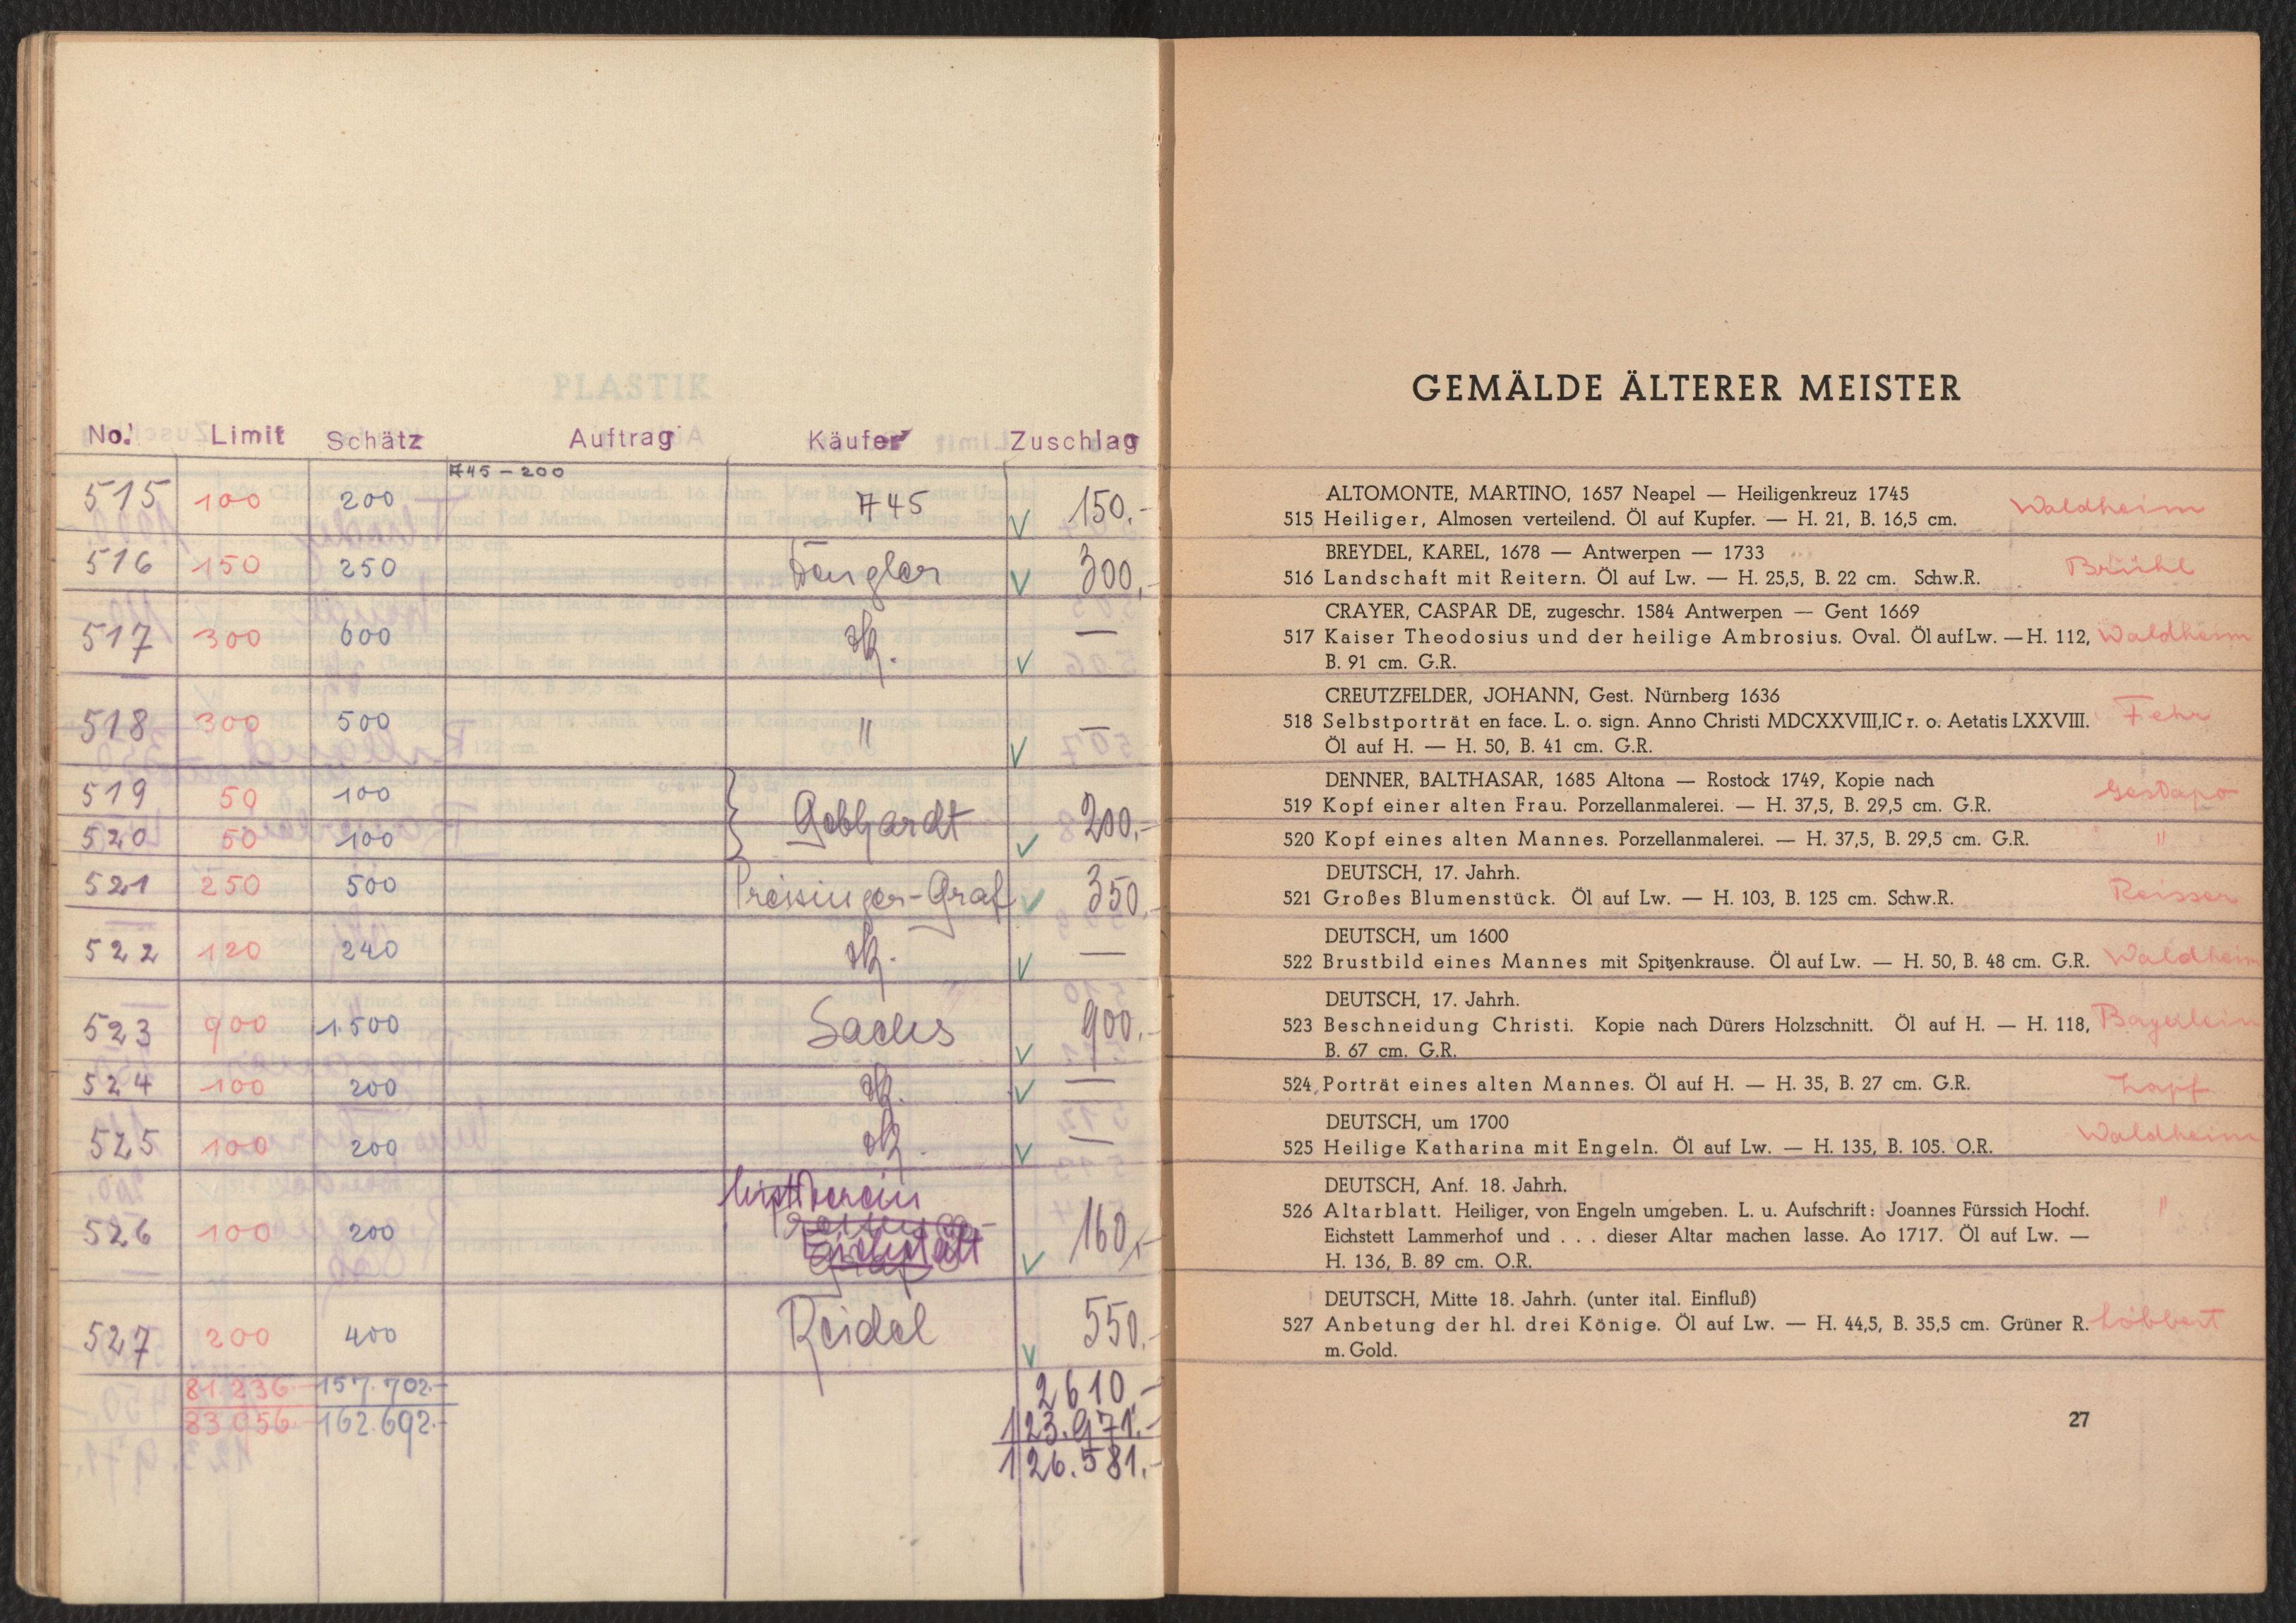 No. Limit Schätz Auftrag Käufer Zuschlag
745 – 200
515 100 200 745 150.-
516 150 250 300.-
517 300 600 —
518 300 500 " —
519 50 100
520 50 100 Gebhardt 200.-
521 250 500 Preisinger-Graf 350.-
522 120 240 —
523 900 1500 Sachs 900.-
524 100 200 —
525 100 200 —
526 100 200 160.-
Eichstätt
527 200 400 Reidel 550.-
81.236.- 157.702.- 2610.-
83.056.- 162.692.- 123.971.-
126.581.-
GEMÄLDE ÄLTERER MEISTER
ALTOMONTE, MARTINO, 1657 Neapel — Heiligenkreuz 1745
515 Heiliger, Almosen verteilend. Öl auf Kupfer. — H. 21, B. 16,5 cm. Waldheim
BREYDEL, KAREL, 1678 — Antwerpen — 1733
516 Landschaft mit Reitern. Öl auf Lw. — H. 25,5, B. 22 cm. Schw.R. Brühl
CRAYER, CASPAR DE, zugeschr. 1584 Antwerpen — Gent 1669
517 Kaiser Theodosius und der heilige Ambrosius. Oval. Öl auf Lw. — H. 112, Waldheim
B. 91 cm. G.R.
CREUTZFELDER, JOHANN, Gest. Nürnberg 1636
518 Selbstporträt en face. L. o. sign. Anno Christi MDCXXVIII,IC r. o. Aetatis LXXVIII. Fehr
Öl auf H. — H. 50, B. 41 cm. G.R.
DENNER, BALTHASAR, 1685 Altona — Rostock 1749, Kopie nach
519 Kopf einer alten Frau. Porzellanmalerei. — H. 37,5, B. 29,5 cm. G.R. Gestapo
520 Kopf eines alten Mannes. Porzellanmalerei. — H. 37,5, B. 29,5 cm. G.R. "
DEUTSCH, 17. Jahrh.
521 Großes Blumenstück. Öl auf Lw. — H. 103, B. 125 cm. Schw.R. Reisser
DEUTSCH, um 1600
522 Brustbild eines Mannes mit Spitzenkrause. Öl auf Lw. — H. 50, B. 48 cm. G.R. Waldheim
DEUTSCH, 17. Jahrh.
523 Beschneidung Christi. Kopie nach Dürers Holzschnitt. Öl auf H. — H. 118, Bayerlein
B. 67 cm. G.R.
524 Porträt eines alten Mannes. Öl auf H. — H. 35, B. 27 cm. G.R.
DEUTSCH, um 1700
525 Heilige Katharina mit Engeln. Öl auf Lw. — H. 135, B. 105. O.R. Waldheim
DEUTSCH, Anf. 18. Jahrh.
526 Altarblatt. Heiliger, von Engeln umgeben. L. u. Aufschrift: Joannes Fürssich Hochf. "
Eichstett Lammerhof und . . . dieser Altar machen lasse. Ao 1717. Öl auf Lw. —
H. 136, B. 89 cm. O.R.
DEUTSCH, Mitte 18. Jahrh. (unter ital. Einfluß)
527 Anbetung der hl. drei Könige. Öl auf Lw. — H. 44,5, B. 35,5 cm. Grüner R. Löbbert
m. Gold.
27